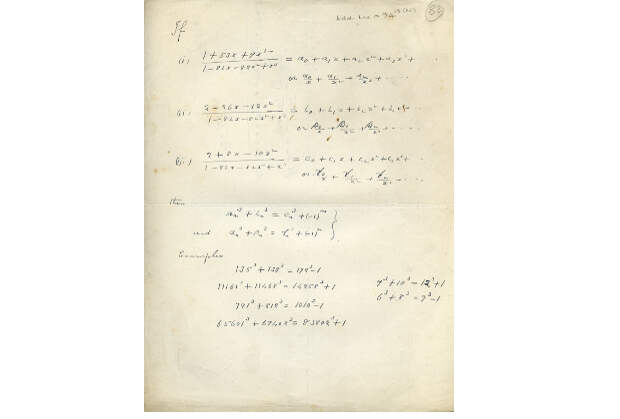 82
If
(i) (1 + 53x + 9x²)/(1 - 82x - 82x² + x³) = a₀ + a₁x + a₂x² + a₃x³ + ...
or α₀/x + α₁/x² + α₂/x³ + ...
(ii) (2 - 26x - 12x²)/(1 - 82x - 82x² + x³) = b₀ + b₁x + b₂x² + b₃x³ + ...
or β₀/x + β₁/x² + β₂/x³ + ...
(iii) (2 + 8x - 10x²)/(1 - 82x - 82x² + x³) = c₀ + c₁x + c₂x² + c₃x³ + ...
or γ₀/x + γ₁/x² + γ₂/x³ + ...
then
aₙ³ + bₙ³ = cₙ³ + (-1)ⁿ }
and αₙ³ + βₙ³ = γₙ³ + (-1)ⁿ }
Examples
135³ + 138³ = 172³ - 1
11161³ + 11468³ = 14258³ + 1
9³ + 10³ = 12³ + 1
791³ + 812³ = 1010³ - 1
6³ + 8³ = 9³ - 1
65601³ + 67402³ = 83802³ + 1